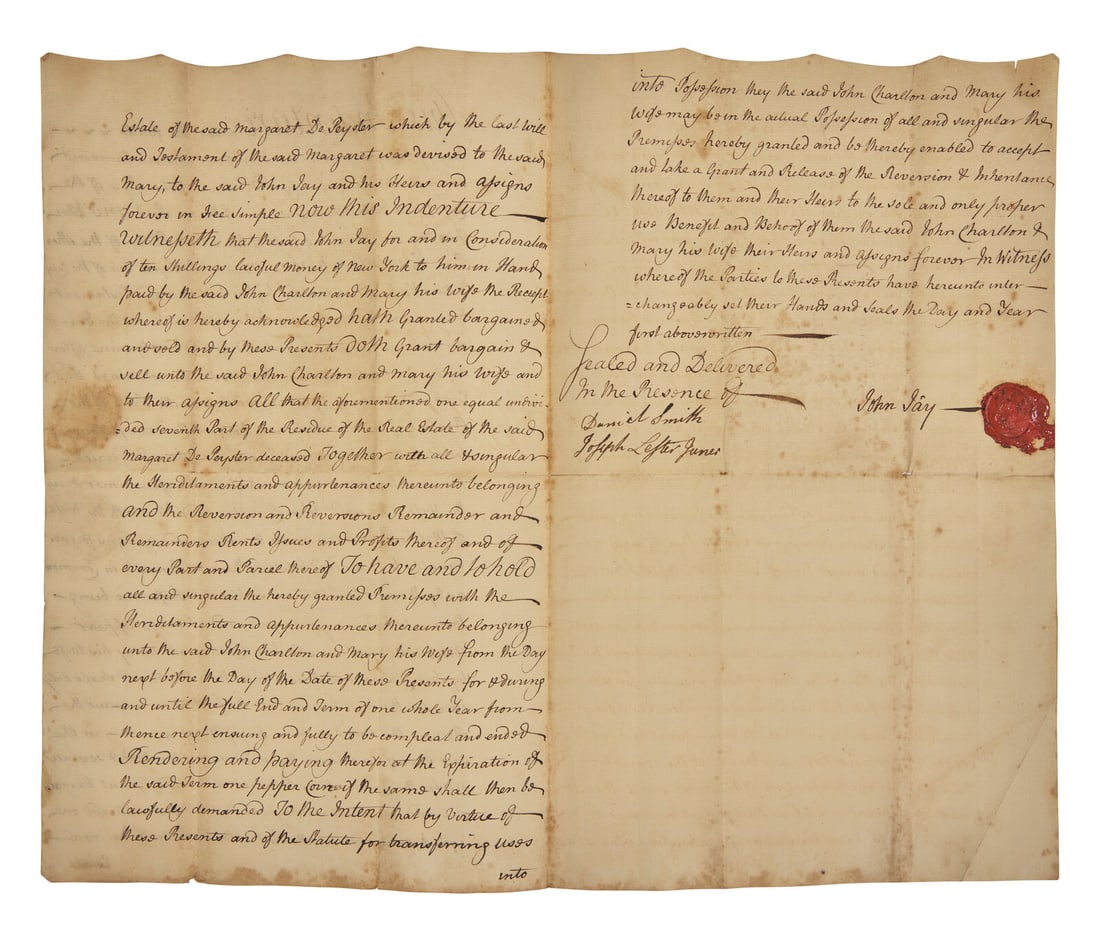 Estate of the said Margaret De Peyster which by the last Will
and Testament of the said Margaret was devised to the said
Mary, to the said John Jay and his Heirs and Assigns
forever in Fee Simple Now this Indenture
Witnesseth that the said John Jay for and in Consideration
of ten Shillings lawful money of New York to him in Hand
paid by the said John Charlton and Mary his Wife the Receipt
whereof is hereby acknowledged hath Granted bargained &
and sold and by these Presents Doth Grant bargain &
sell unto the said John Charlton and Mary his Wife and
to their Assigns All that the aforementioned one equal undivi
=ded seventh Part of the Residue of the Real Estate of the said
Margaret De Peyster deceased Together with all & singular
the Heriditaments and appurtenances thereunto belonging
and the Reversion and Reversions Remainder and
Remainders Rents Issues and Profits thereof and of
every Part and Parcel thereof To have and to hold
all and singular the hereby granted Premisses with the
Heriditaments and appurtenances thereunto belonging
unto the said John Charlton and Mary his Wife from the Day
next before the Day of the Date of these Presents for & during
and until the full End and Term of one whole Year from
thence next ensuing and fully to be compleat and ended
Rendering and paying therefor at the Expiration of
the said Term one pepper Corn if the same shall then be
lawfully demanded To the Intent that by Virtue of
these Presents and of the Statute for transferring uses
into
into Possession they the said John Charlton and Mary his
Wife may be in the actual Possession of all and singular the
Premisses hereby granted and be thereby enabled to accept
and take a Grant and Release of the Reversion & Inheritance
thereof to them and their Heirs to the sole and only proper
use Benefit and Behoof of them the said John Charlton &
Mary his Wife their Heirs and Assigns forever In Witness
whereof the Parties to these Presents have hereunto inter
=changeably set their Hands and Seals the Day and Year
first above written
Sealed and Delivered
In the Presence of
John Jay
Daniel Smith
Joseph Lester Juner